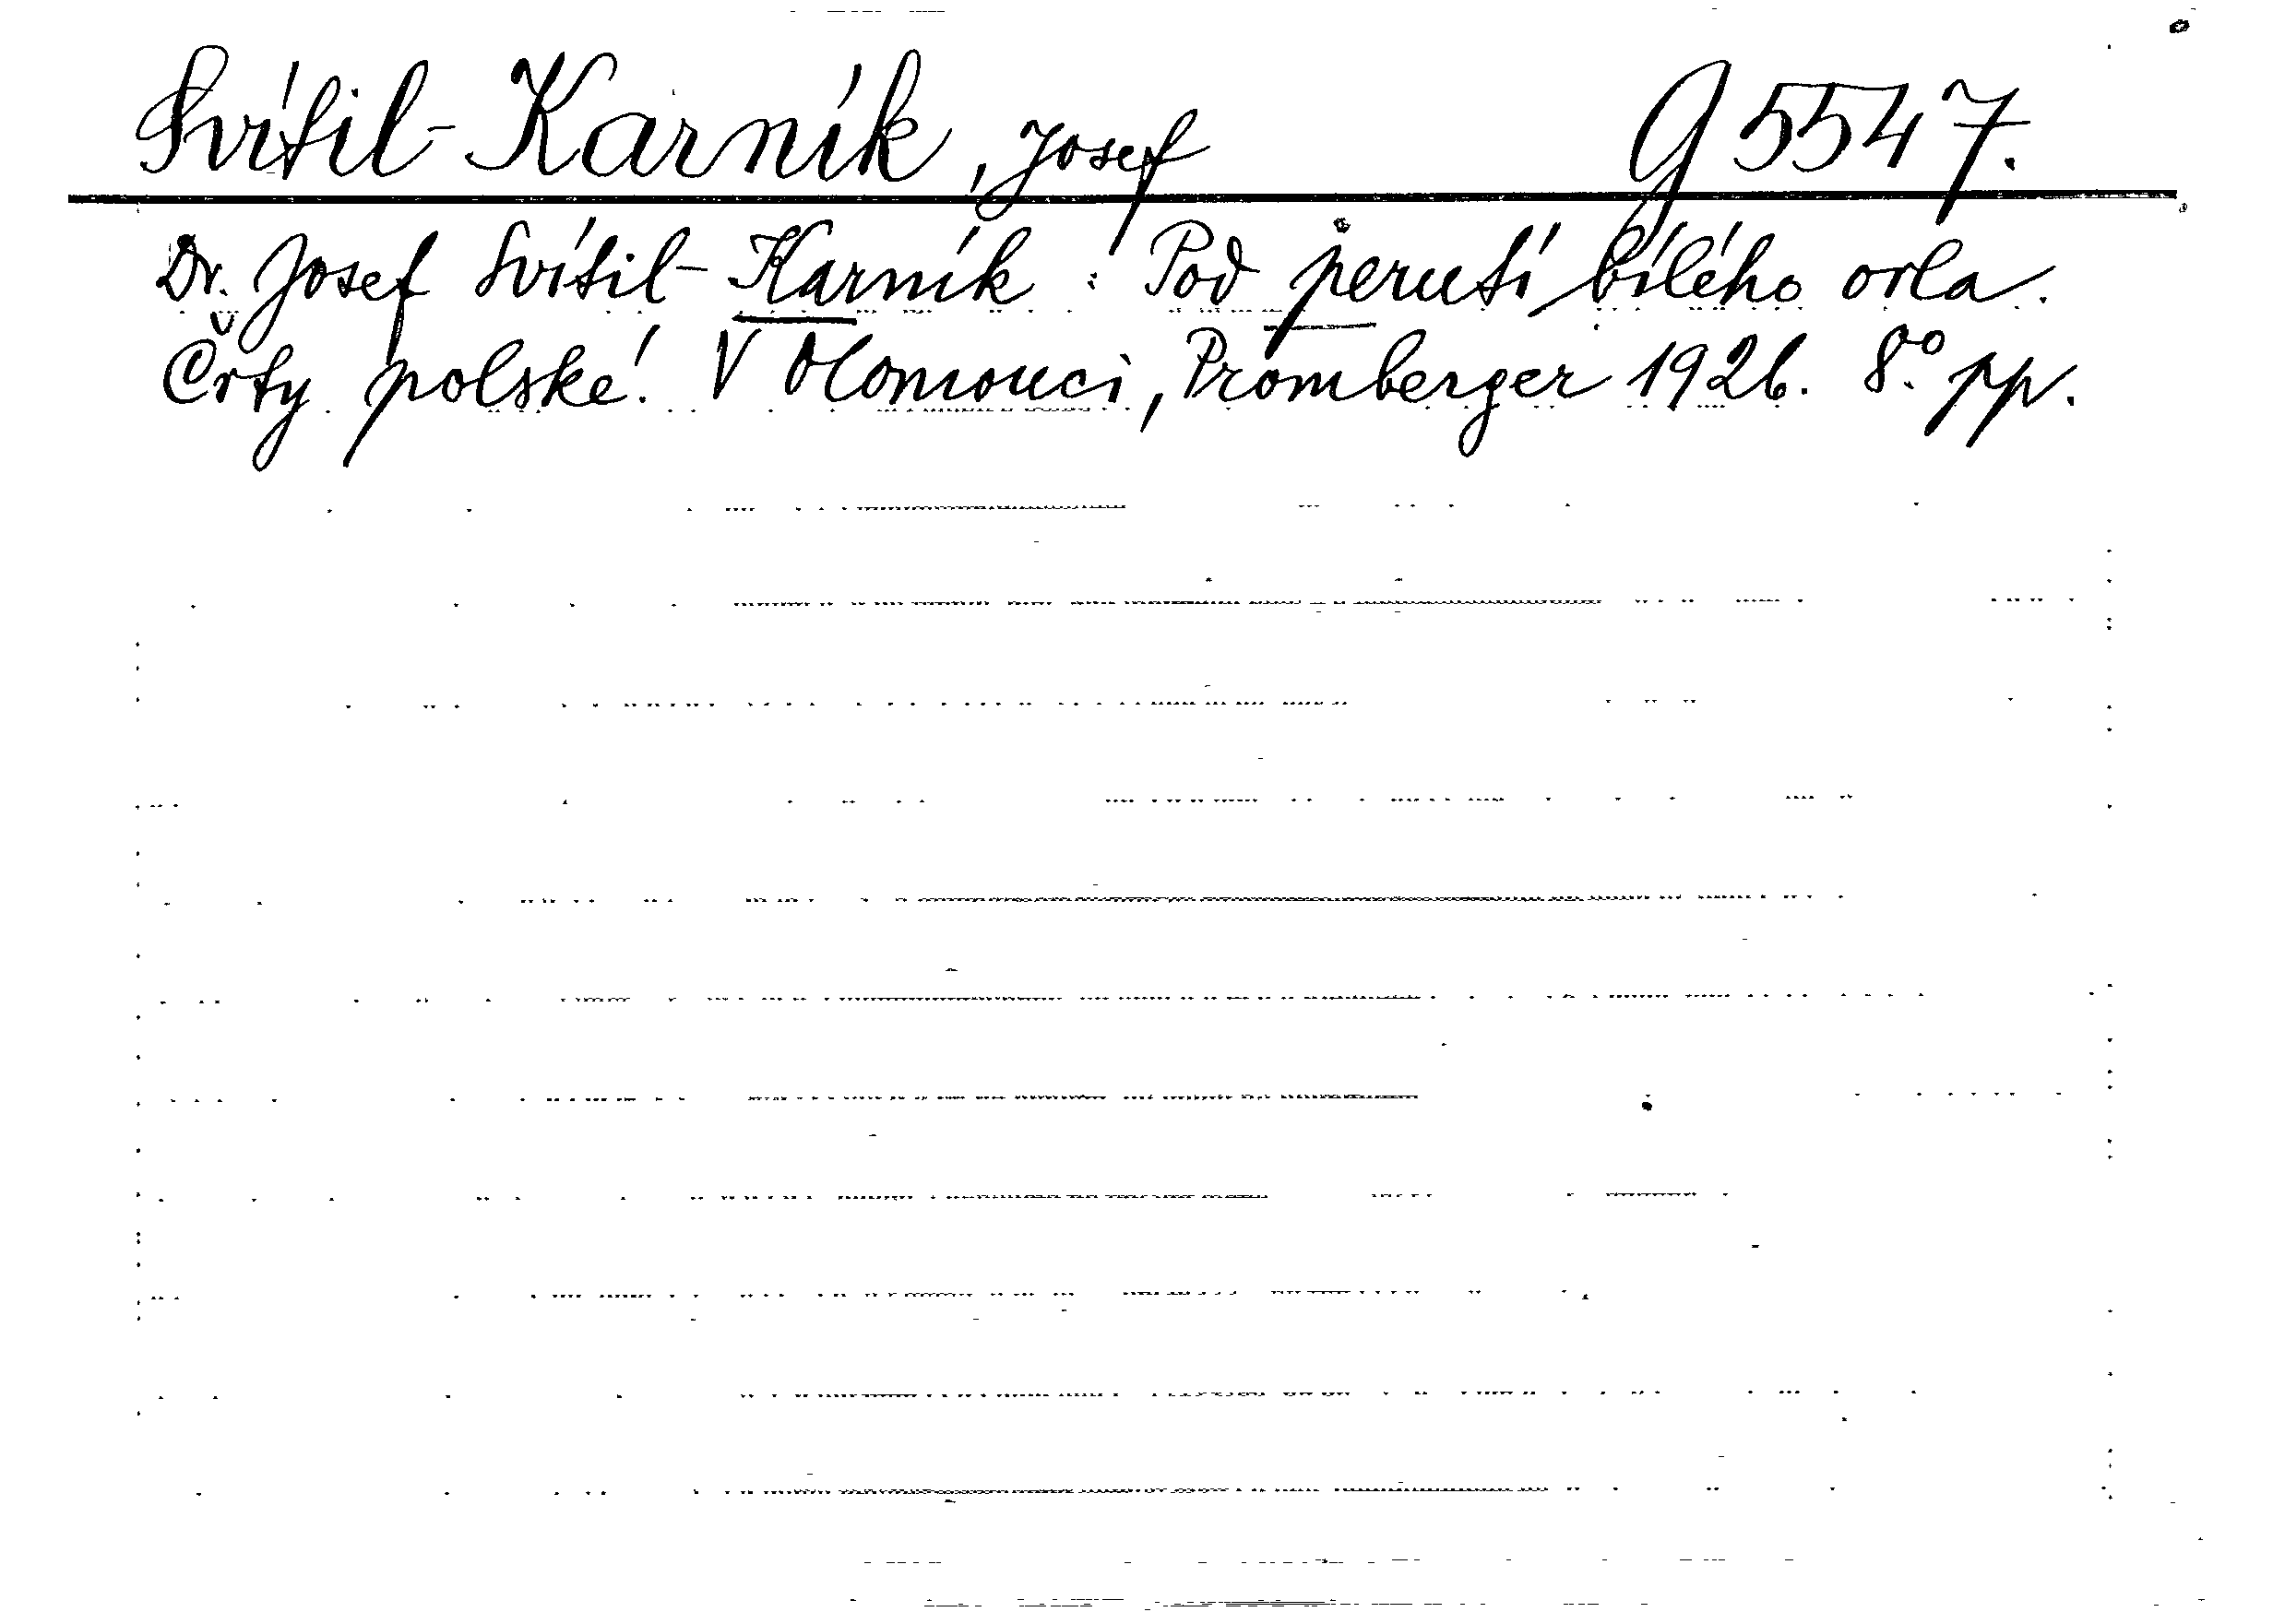 Svítil-Karník, Josef G 5547.
Dr. Josef Svítil-Karník: Pod perutí bílého orla.
Črty polské. V Olomouci, Promberger 1926. 8° pp.